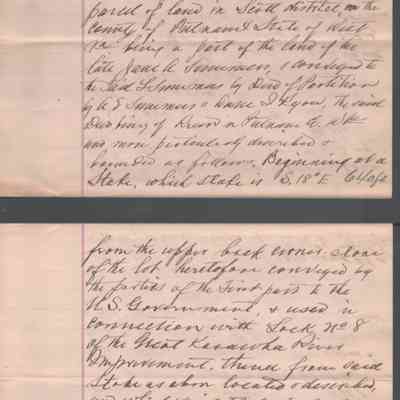 parcel of land in Scott district, in the
County of Putnam & State of West
Va. being a part of the land of the
late Jane A Simmons, & conveyed to
the said L Simmons by Deed of Partition
by A E Simmons & the said
of Record in Putnam Co.
and more particularly described &
bounded as follows, Beginning at a
Stake, which stake is S. 18° E 64
from the upper back corner stone
of the lot heretofore conveyed by
the parties of the first part to the
U.S. Government, & used in
connection with Lock No 8
of the Great Kanawha River
Improvement, thence from said
Stake as above located & described,